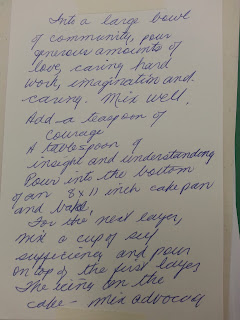 Into a large bowl
of community, pour
generous amounts of
love, caring hard
work, imagination and
caring. Mix well.
Add a teaspoon of
courage
A tablespoon of
insight and understanding
Pour into the bottom
of an 8 x 11 inch cake pan
and bake.
For the next layer,
mix a cup of self
sufficiency and pour
on top of the first layer
The icing on the
cake - mix advocacy